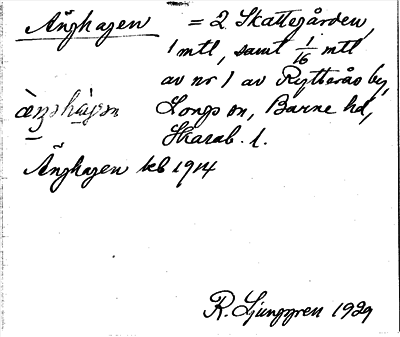 Änghagen = 2 Skattegården,
1 mtl, samt 1/16 mtl
av nr 1 av Rytterås by,
Longs sn, Barne hd,
Skarab. l.
Änghagen kb 1914
R. Ljunggren 1929